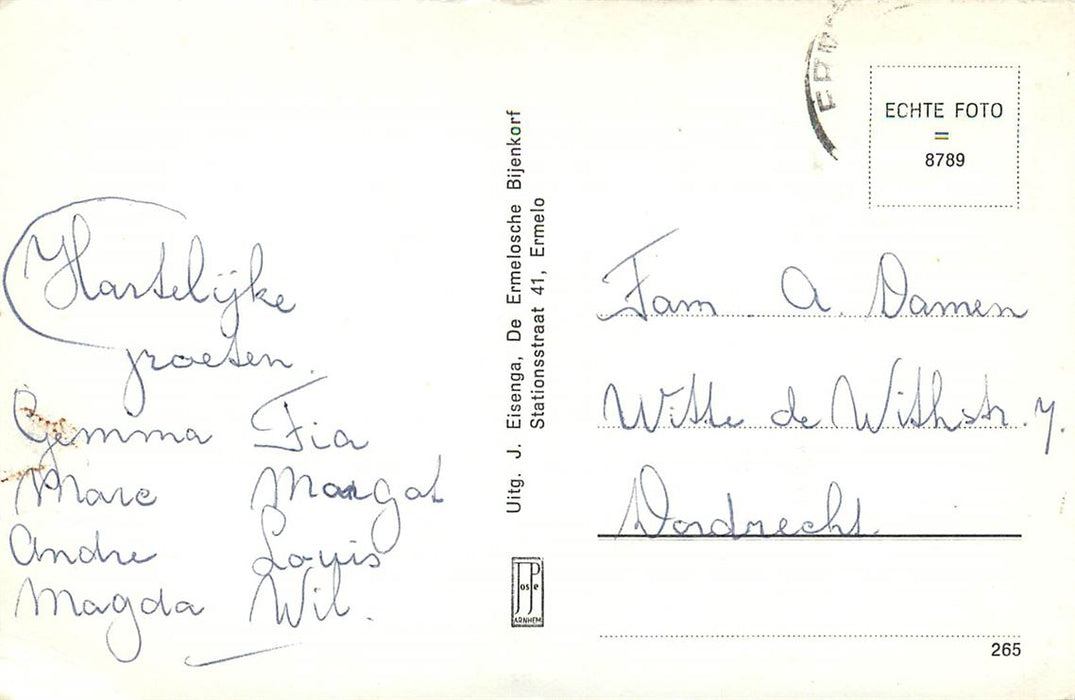 Hartelijke
groeten.
Gemma Fia
Marc Margot
Andre Louis
Magda Wil.
Uitg. J. Eisenga, De Ermelosche Bijenkorf
Stationsstraat 41, Ermelo
JosPe
ARNHEM
ECHTE FOTO
=
8789
Fam. A. Damen
Witte de Withstr. 7.
Dordrecht.
265